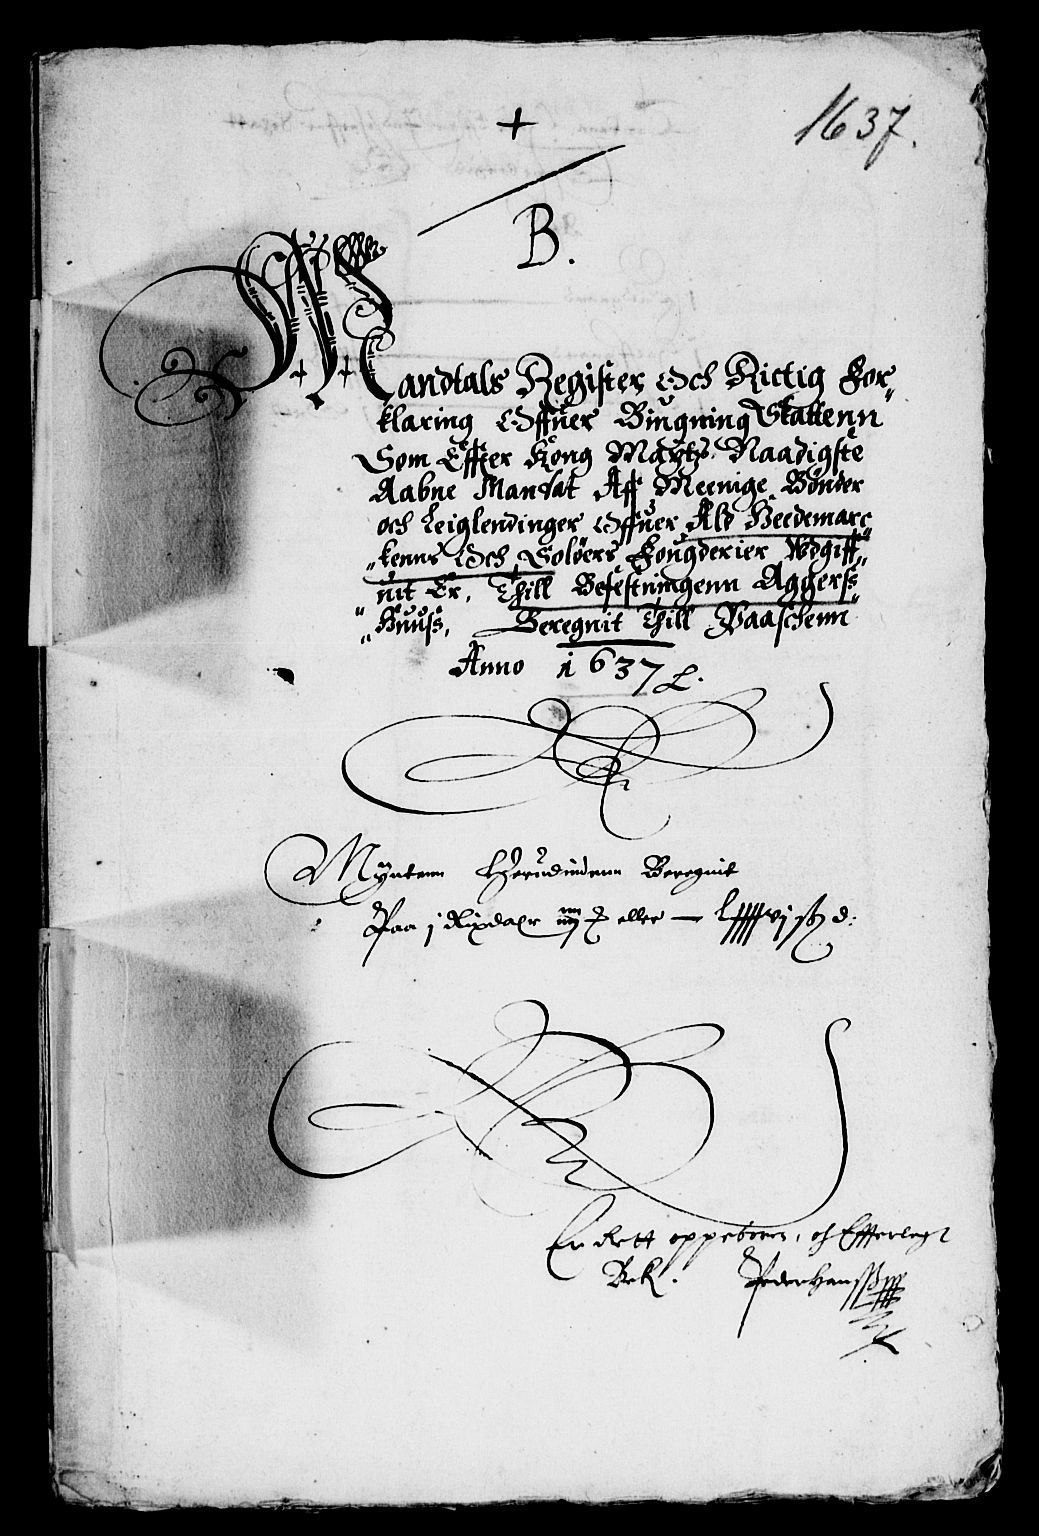 1637.
+
B.
Mandtals Register Och Rictig For„
klaring Offuer Bÿgning Skattenn
Som Effter Kong Maÿtz Naadigste
Aabne Mandat Aff Meenige Bønder
och Leiglendinger Offuer Ald Heedemarc
„kenns Och Soløers Fougderier Wdgiff„
„uit Er, Thill Befestningenn Aggers„
„Huuss, Beregnit Thill Paaschenn
Anno 1637
Mÿntenn Herudindenn Beregnit
Paa j Rixdaler eller ß d:
Er dett oppeboren, och Effterlegt
Bek. Peder Hanss